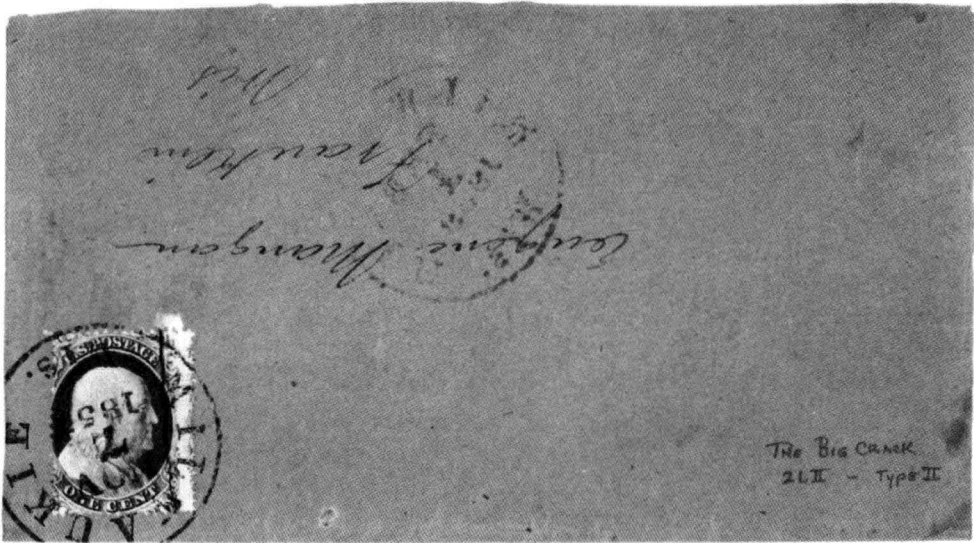 Eugene Mangan
Franklin
Wis
U.S. POSTAGE
ONE CENT
MILWAUKIE
185
THE BIG CRACK
2L II - Type II